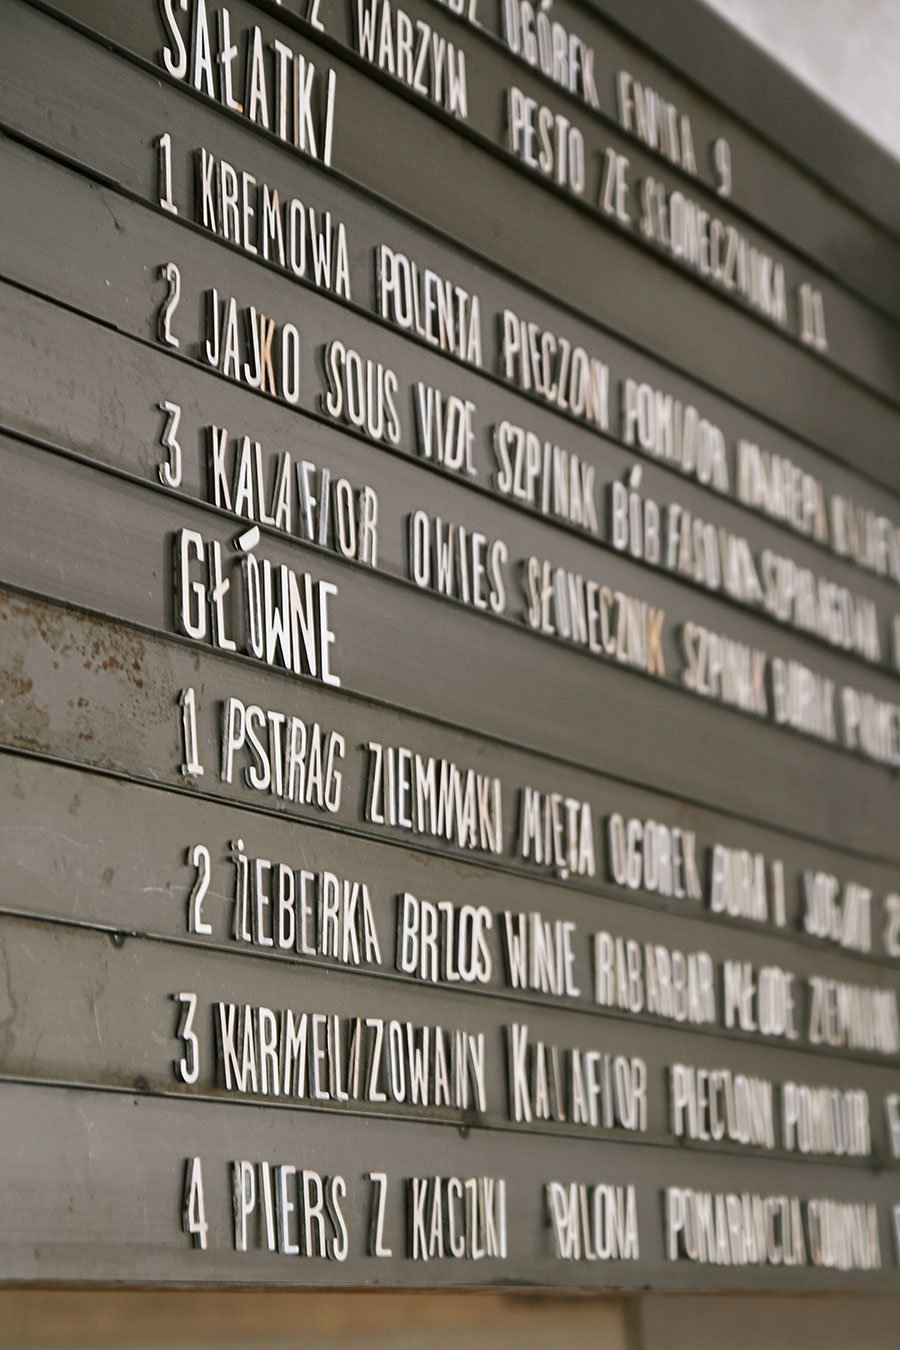 OGÓREK 9
Z WARZYW PESTO ZE SŁONECZNIKA 11
SAŁATKI
1 KREMOWA POLENTA PIECZONY POMIDOR
2 JAJKO SOUS VIDE SZPINAK BÓB FASOLKA SZPARAGOWA
3 KALAFIOR OWIES SŁONECZNIK SZPINAK
GŁÓWNE
1 PSTRĄG ZIEMNIAKI MIĘTA OGÓREK JOGURT
2 ŻEBERKA BRZOSKWINIE RABARBAR MŁODE
3 KARMELIZOWANY KALAFIOR PIECZONY POMIDOR
4 PIERŚ Z KACZKI PALONA POMARAŃCZA